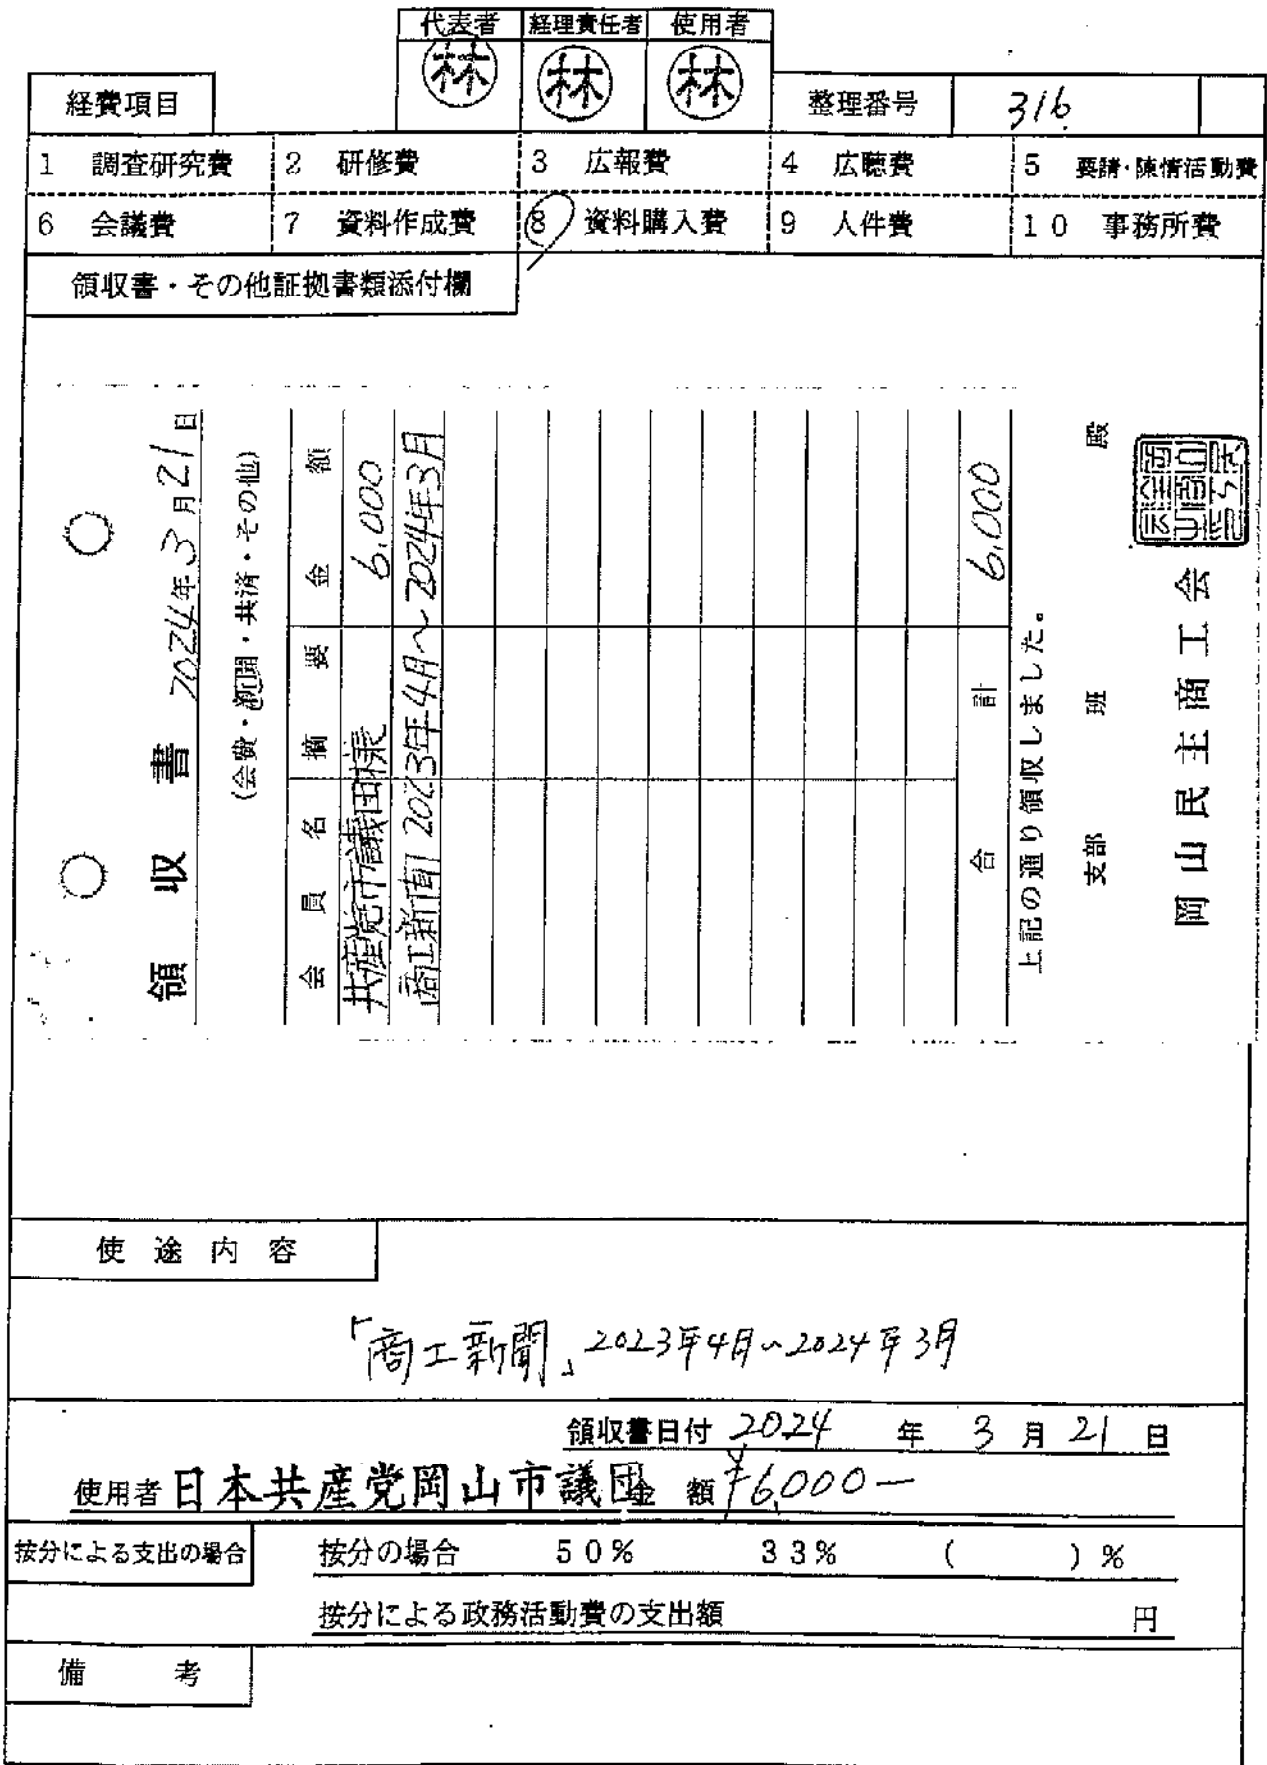 代表者 経理責任者 使用者
林 林 林
経費項目 整理番号 316
1 調査研究費 2 研修費 3 広報費 4 広聴費 5 要請・陳情活動費
6 会議費 7 資料作成費 8 資料購入費 9 人件費 10 事務所費
領収書・その他証拠書類添付欄
領収書 2024年3月21日
(会費・新聞・共済・その他)
会員名 摘要 金額
共産党市議団様 6,000
商工新聞 2023年4月～2024年3月
合計 6,000
上記の通り領収しました。
支部 班 殿
岡山民主商工会
使途内容
「商工新聞」2023年4月～2024年3月
領収書日付 2024年3月21日
使用者 日本共産党岡山市議団 金額 ¥6,000−
按分による支出の場合 按分の場合 50% 33% ( )%
按分による政務活動費の支出額 円
備考